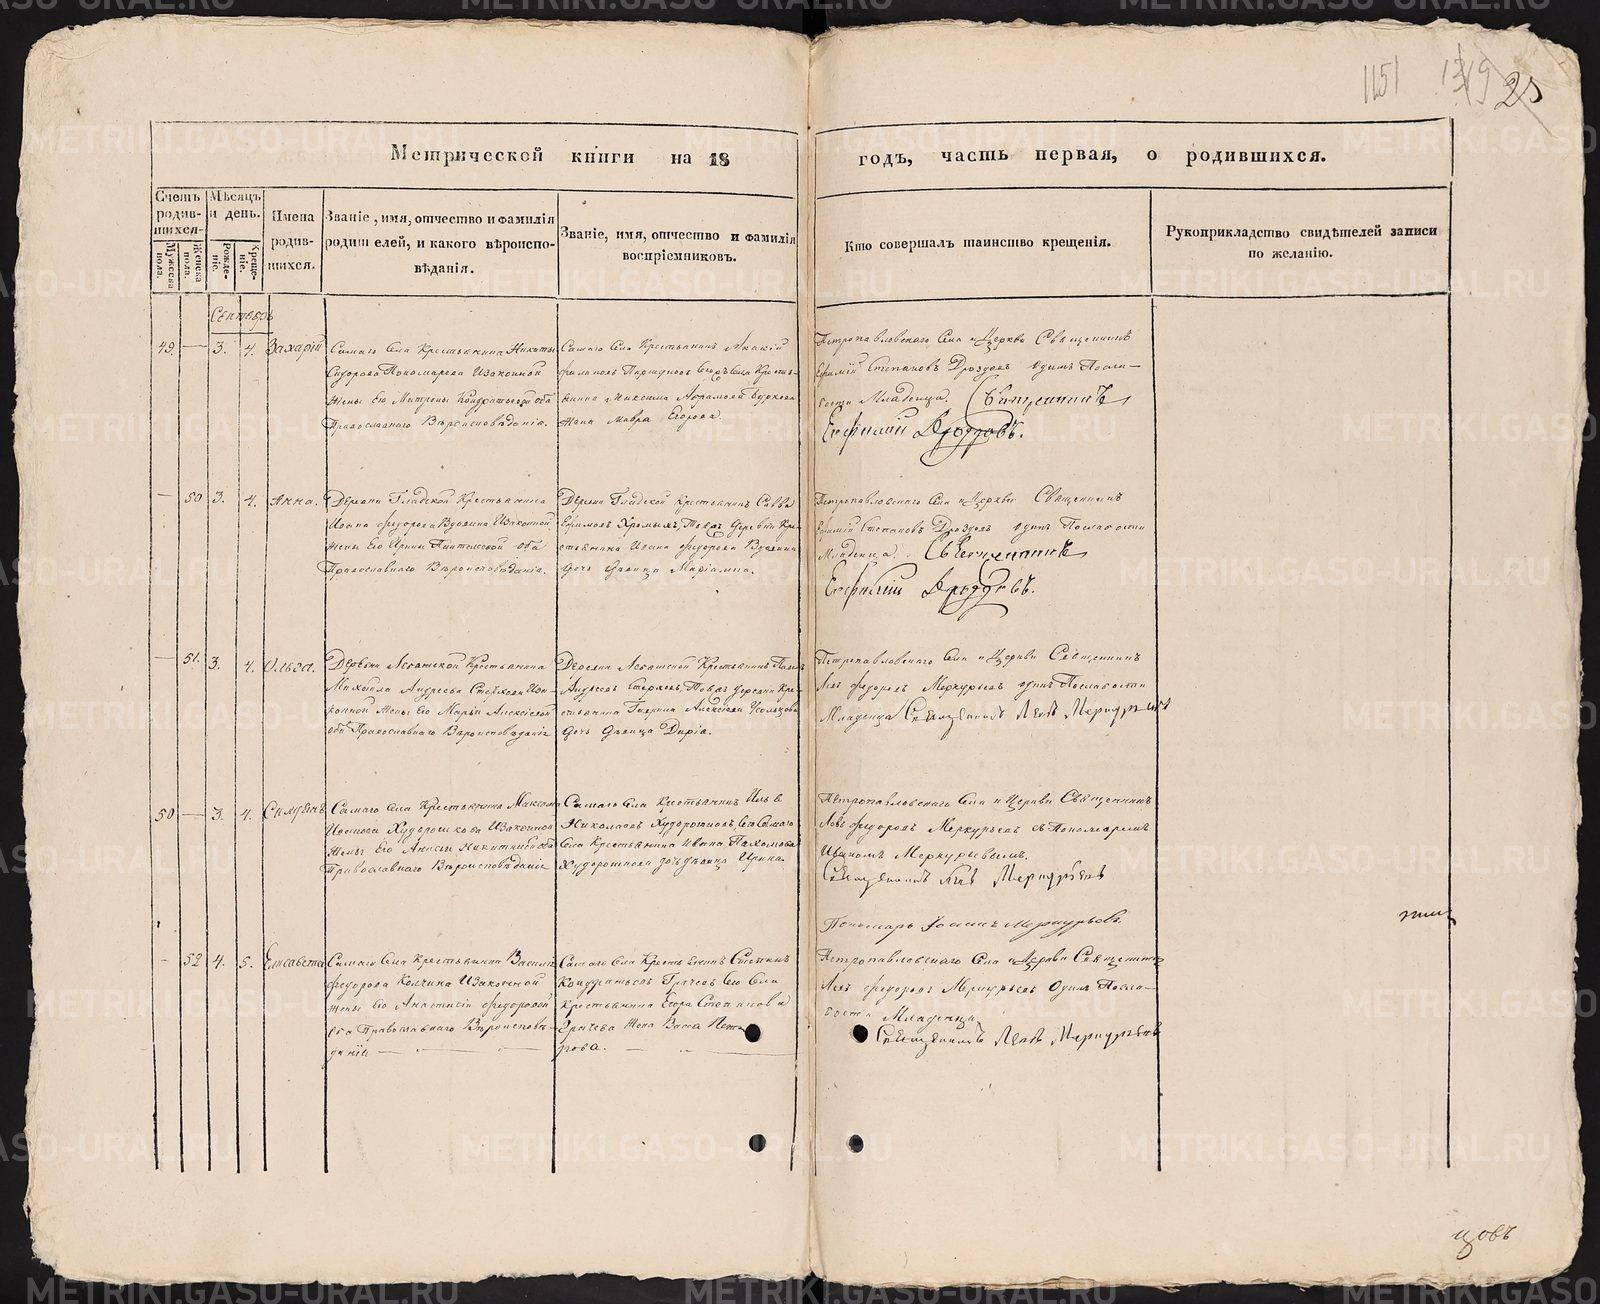 1151 1319 25
Метрической книги на 18 годъ, часть первая, о родившихся.
Счетъ родившихся.
Мужеска пола.
Женска пола.
Мѣсяцъ и день.
Рожденіе.
Крещеніе.
Имена родившихся.
Званіе, имя, отчество и фамилія
родителей, и какого вѣроиспо-
вѣданія.
Званіе, имя, отчество и фамилія
воспріемниковъ.
Кто совершалъ таинство крещенія.
Рукоприкладство свидѣтелей записи
по желанію.
Сентябрь
49. — 3. 4. Захарій
Самаго Села Крестьянина Никиты
Сидорова Пономарева Изаконной
Жены Его Матрены Кондратьевой оба
Православнаго Вѣроисповѣданія.
Самаго Села Крестьянинъ
Села Кресть-
янина Максима Абрамова
Жена Мавра Егорова.
Петропавловскаго Села и Церкви Священникъ
Ефимій Степановъ Дроздовъ одинъ Посла-
бости Младенца. Священникъ
Евфимій Дроздовъ.
— 50 3. 4. Анна.
Деревни Гладкой Крестьянина
Ивана Федорова Вдовина Изаконной
Жены Его Ирины оба
Православнаго Вѣроисповѣданія.
Деревни Гладкой Крестьянинъ Савва
Ефимовъ Хромыхъ Тояжъ деревни Кре-
стьянина Ивана Федорова Вдовина
дочь дѣвица Маріамна.
Петропавловскаго Села и Церкви Священникъ
Ефимій Степановъ Дроздовъ одинъ Послабости
Младенца. Священникъ
Евфимій Дроздовъ.
— 51. 3. 4. Ольга.
Деревни Крестьянина
Михайла Андреева Изa-
конной Жены Его Марьи Алексѣевой
оба Православнаго Вѣроисповѣданія
Деревни Крестьянинъ
Андреевъ Тояжъ деревни Кре-
стьянина Гаврила Алексѣева
дочь дѣвица Дарія.
Петропавловскаго Села и Церкви Священникъ
Левъ Федоровъ Меркурьевъ одинъ Послабости
Младенца Священникъ Левъ Меркурьевъ
50 — 3. 4. Симеонъ
Самаго Села Крестьянина Максима
Иванова Худорошкова Изаконной
Жены Его Анисьи Никитиной оба
Православнаго Вѣроисповѣданія
Самаго Села Крестьянинъ Илья
Николаевъ Худорошковъ, Самаго
Села Крестьянина Ивана Пахомова
Худорошкова дочь дѣвица Ирина.
Петропавловскаго Села и Церкви Священникъ
Левъ Федоровъ Меркурьевъ съ Пономаремъ
Иваномъ Меркурьевымъ.
Священникъ Левъ Меркурьевъ
Пономарь Іоаннъ Меркурьевъ.
— 52 4. 5. Елисавета
Самаго Села Крестьянина Василія
Федорова Колчина Изаконной
Жены Его Анастасіи Федоровой
оба Православнаго Вѣроисповѣ-
данія
Самаго Села Крестьянинъ Степанъ
Кондратьевъ Грачевъ Села
Крестьянина Егора Степанова
Грачева Жена Васса Пет-
рова.
Петропавловскаго Села и Церкви Священникъ
Левъ Федоровъ Меркурьевъ Одинъ Посла-
бости Младенца
Священникъ Левъ Меркурьевъ
цовъ
METRIKI.GASO-URAL.RU